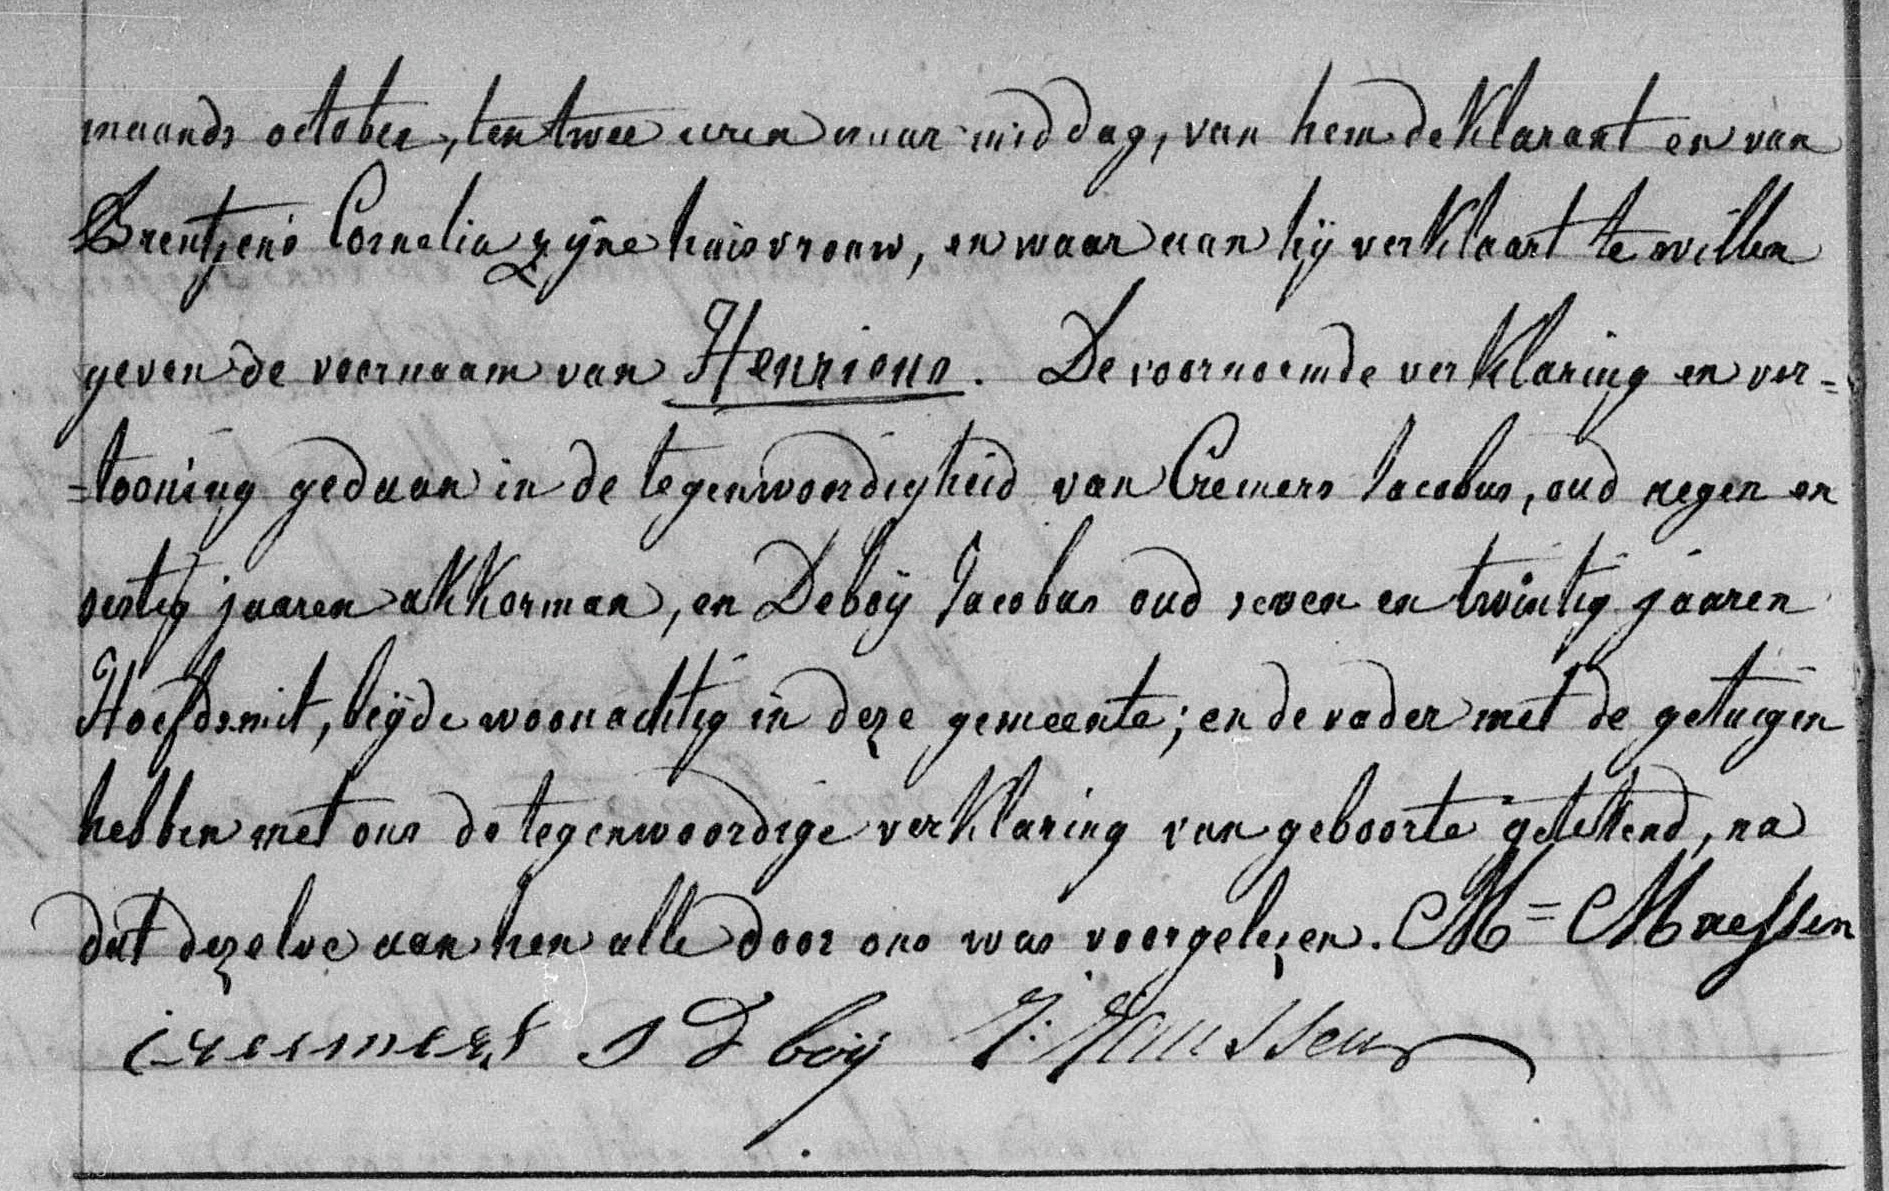 maands october, ten twee uren naar middag, van hem deklarant en van
Brentjens Cornelia zÿne huisvrouw, en waar aan hÿ verklaart te willen
geven de voornaam van Henricus. De voornoemde verklaring en ver=
=tooning gedaan in de tegenwoordigheid van Cremers Jacobus, oud negen en
vertig jaaren akkerman, en Deböÿ Jacobus oud seven en twintig jaaren
Hoefdsmit, beÿde woonachtig in deze gemeente; en de vader met de getuigen
hebben met ons de tegenwoordige verklaring van geboorte getekend, na
dat dezelve aan hen alle door ons was voorgelezen. M= Maessen
creemers J D böÿ J: Janssen